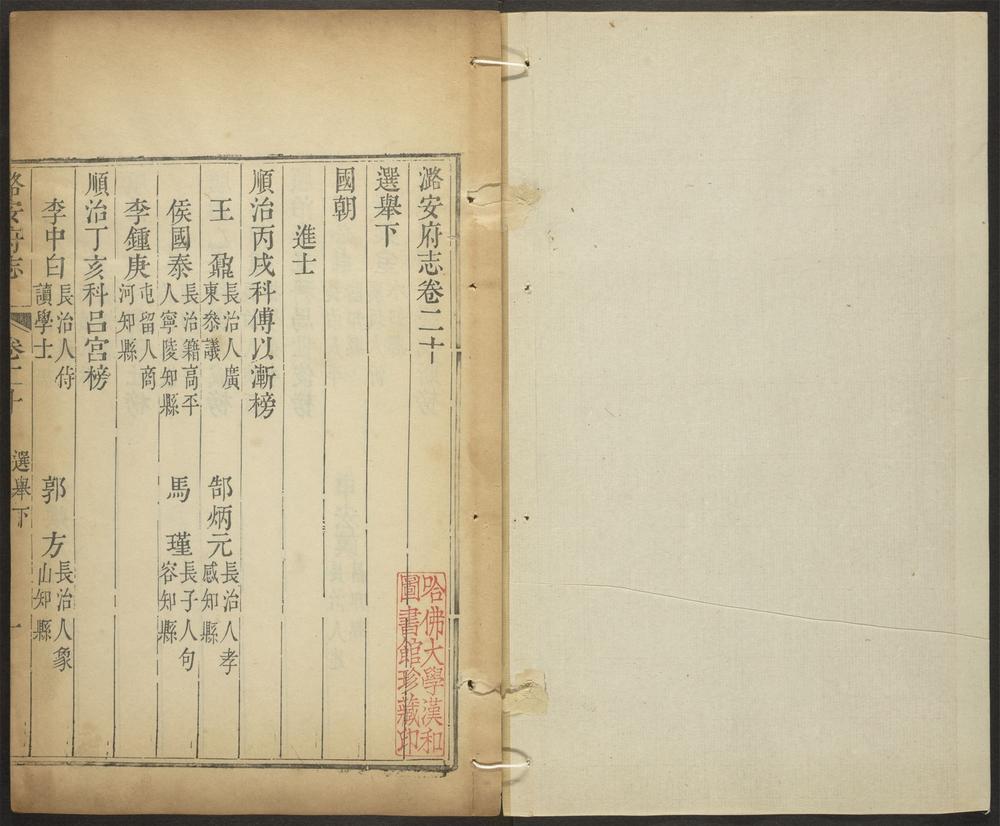 潞安府志卷二十
選舉下
國朝
進士
順治丙戌科傅以漸榜
王鼐長治人廣東叅議 郜炳元長治人孝感知縣
侯國泰長治籍高平人寧陵知縣 馬瑾長子人句容知縣
李鍾庚屯留人商河知縣
順治丁亥科呂宮榜
李中白長治人侍讀學士 郭方長治人象山知縣
潞安府志 卷二十 選舉下 一
哈佛大學漢和
圖書館珍藏印